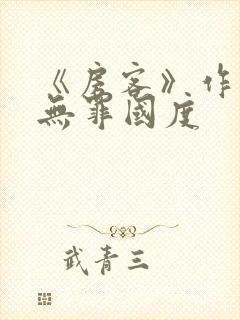 《房客》作
無罪國度
武青三